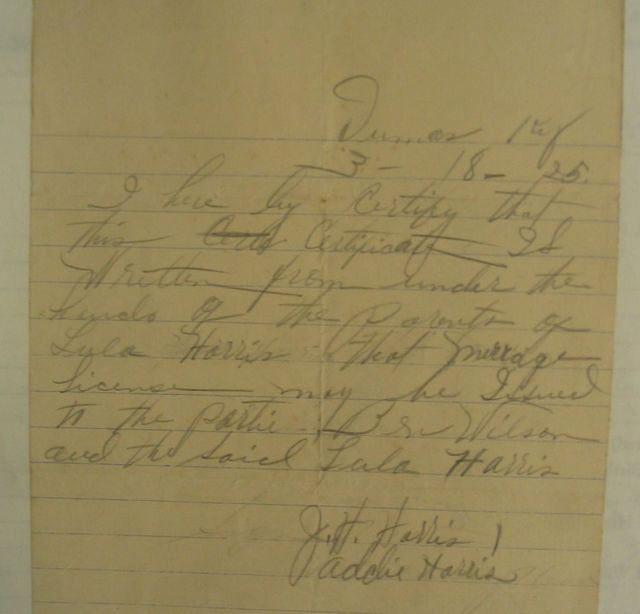 Dumas
3 - 18 - 25
I here by Certify that
this Certificate Is
Written from under the
hands of the Parents of
Lula Harris that Merrage
License may be Issued
to the partie, Ben Wilson
and the Said Lula Harris
J. H. Harris
Addie Harris